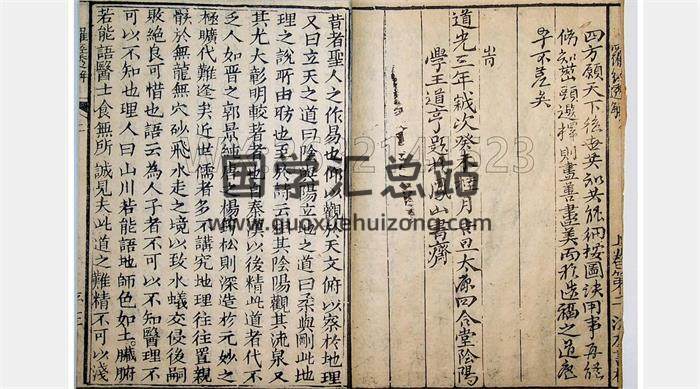 四方願天下後世共知共能倘按圖訣用事再能
偹知茁頭選擇則盡善盡美而於造福之道庶
乎不差矣
旹
道光三年歲次癸未月日太原四合堂陰陽
學王道亨題于鳳山書齋
昔者聖人之作易也仰以觀於天文俯以察於地理
又曰立天之道曰陰與陽立地之道曰柔與剛此地
理之說所由昉也至於詩云相其陰陽觀其流泉又
其尤大彰明較著者也自秦漢以後精此道者代不
乏人如晋之郭景純唐之楊筠松則深造於元妙之
極曠代難逢矣近世儒者多不講究地理往往置親
骸於無龍無穴砂飛水走之境以致水蟻交侵後嗣
敗絕良可惜也語云為人子者不可以不知醫理不
可以不知地理人曰山川若能語地師色如土臟腑
若能語醫士食無所誠見夫此道之難精不可以淺
國学汇总站
www.guoxuehuizong.com